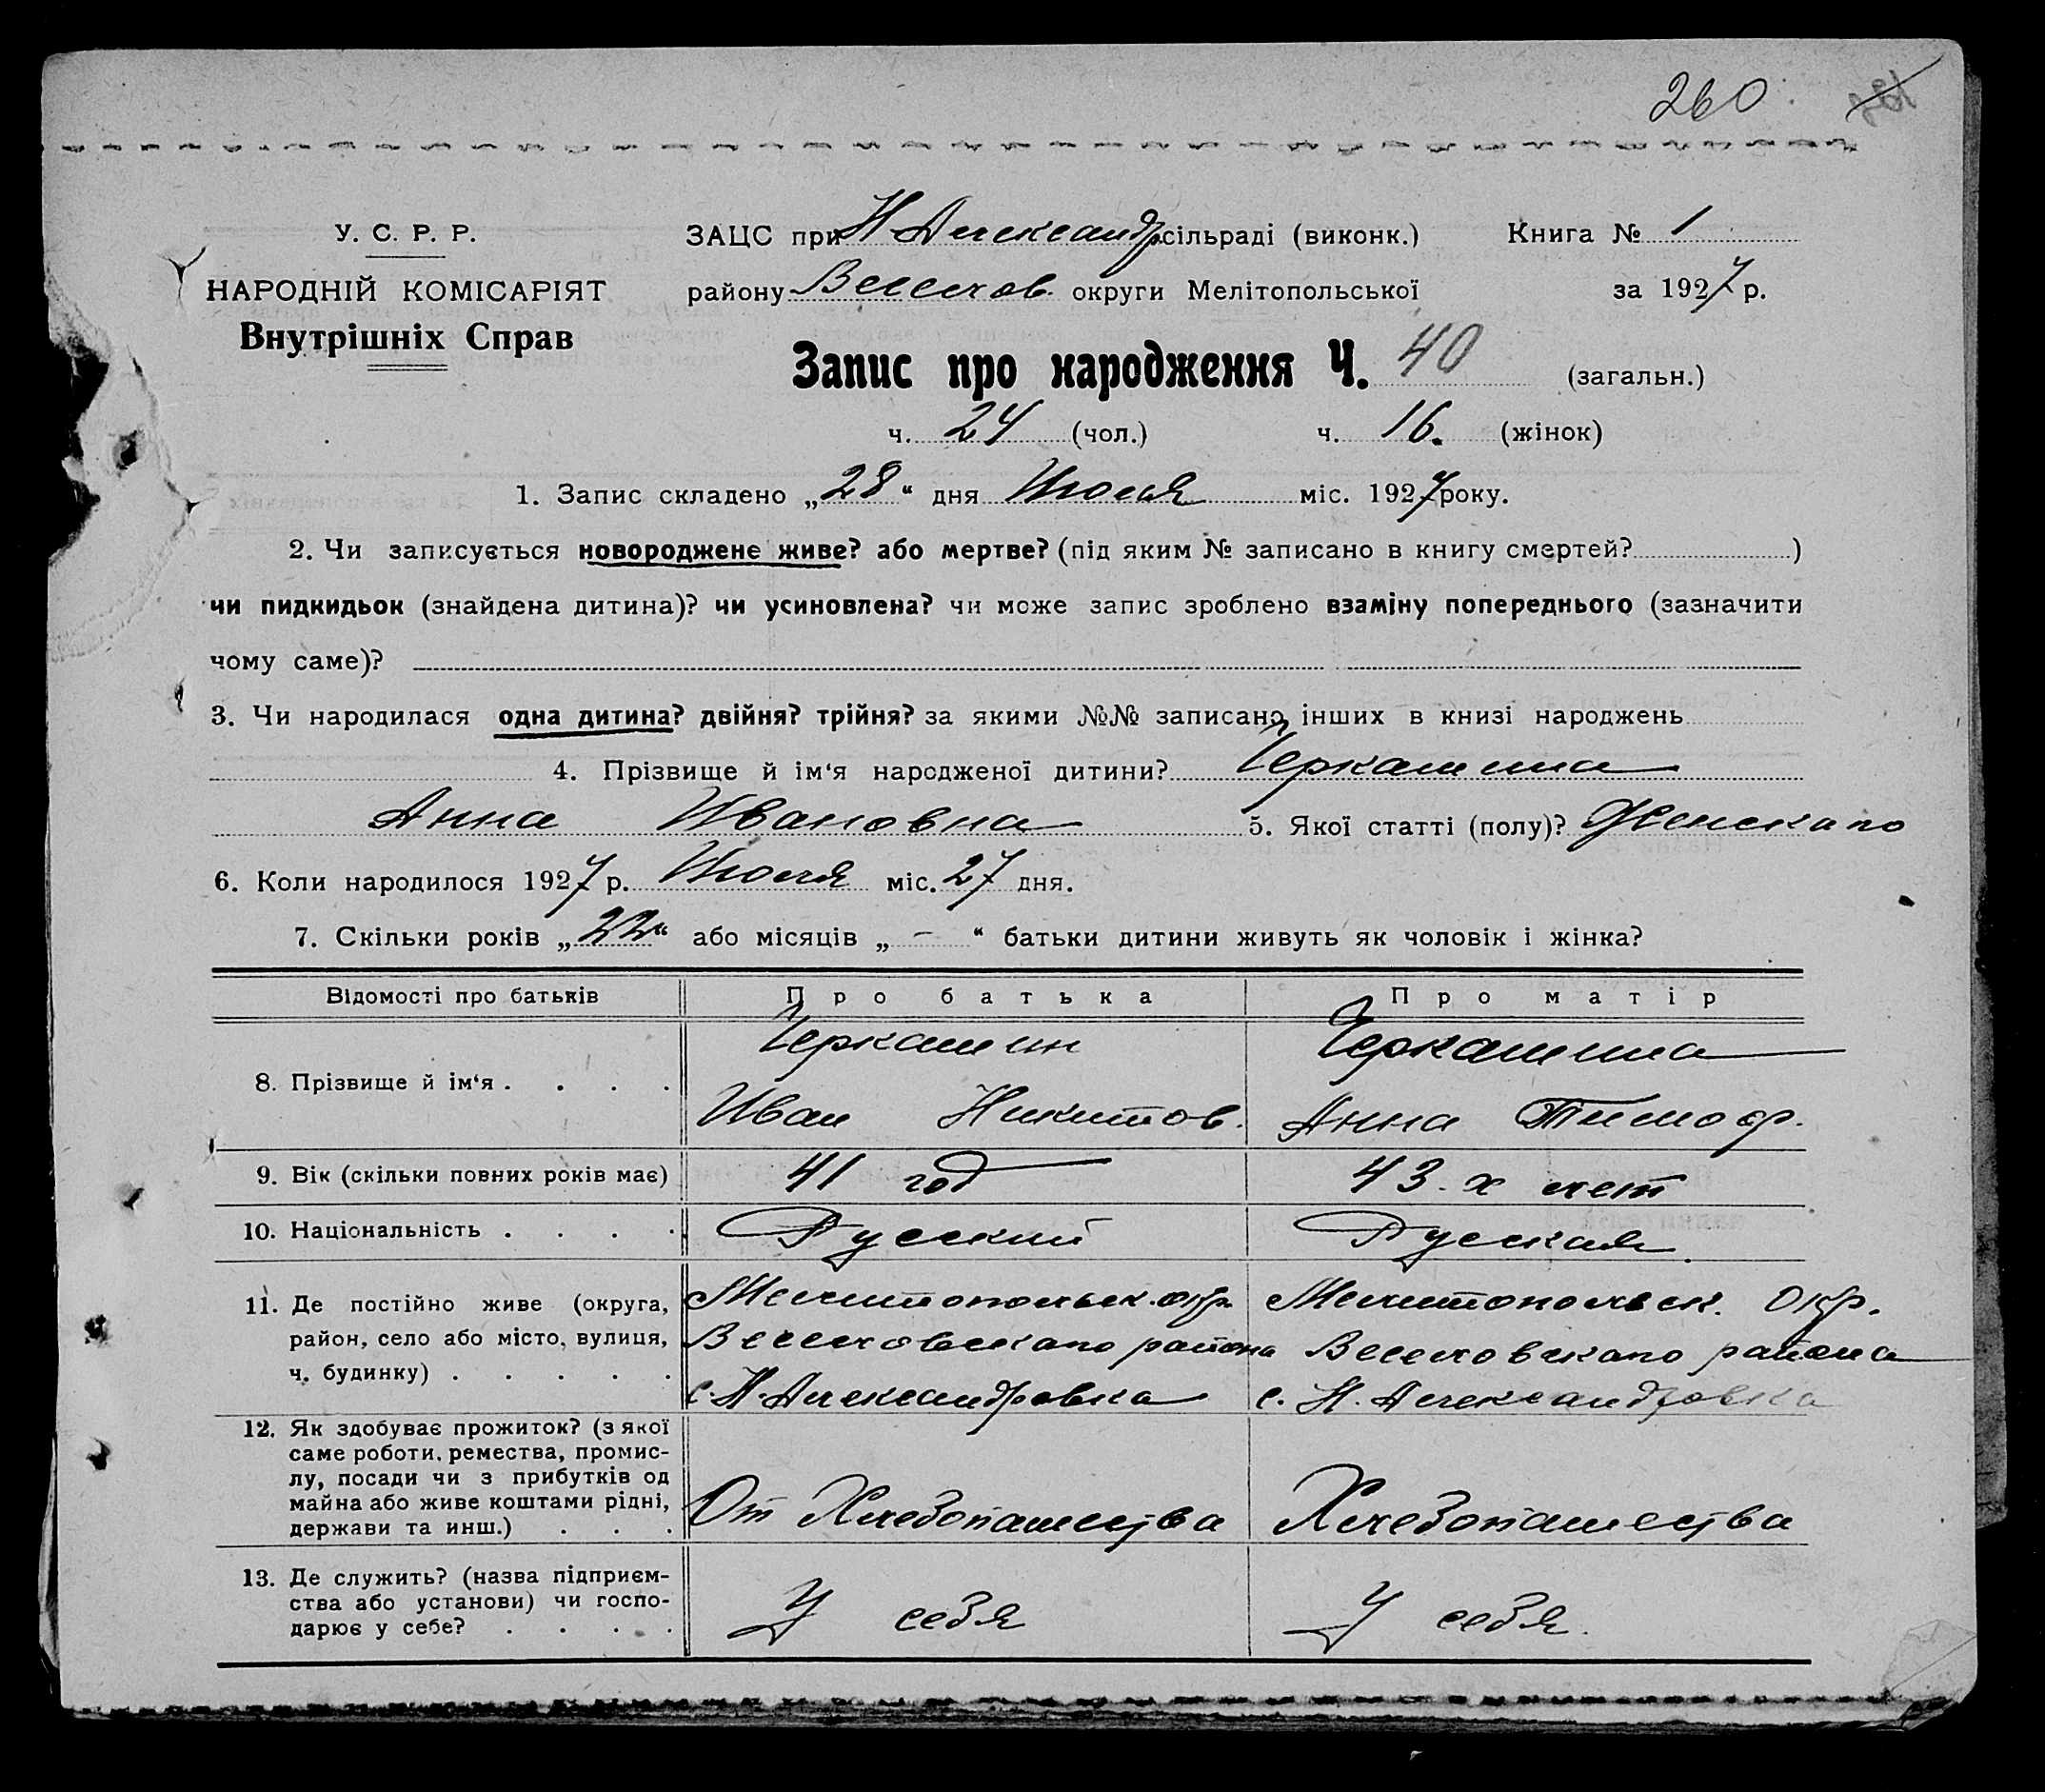 260
У. С. Р. Р.
НАРОДНІЙ КОМІСАРІЯТ
Внутрішніх Справ
ЗАЦС при Н Александр. сільраді (виконк.) Книга № 1
району Веселов. округи Мелітопольської за 1927 р.
Запис про народження Ч. 40 (загальн.)
ч. 24 (чол.) ч. 16. (жінок)
1. Запис складено „28“ дня Июля міс. 1927 року.
2. Чи записується новороджене живе? або мертве? (під яким № записано в книгу смертей? )
чи пидкидьок (знайдена дитина)? чи усиновлена? чи може запис зроблено взаміну попереднього (зазначити
чому саме)?
3. Чи народилася одна дитина? двійня? трійня? за якими №№ записано інших в книзі народжень
4. Прізвище й ім‘я народженої дитини? Черкашина
Анна Ивановна 5. Якої статті (полу)? Женскаго
6. Коли народилося 1927 р. Июля міс. 27 дня.
7. Скільки років „22“ або місяців „ - “ батьки дитини живуть як чоловік і жінка?
Відомості про батьків Про батька Про матір
8. Прізвище й ім‘я . . . . Черкашин Черкашина
Иван Никитов. Анна Тимоф.
9. Вік (скільки повних років має) 41 год 43-х лет
10. Національність . . . . Русский Руская
11. Де постійно живе (округа, Мелитопольск. окр. Мелитопольск. Окр.
район, село або місто, вулиця, Веселовскаго района Веселовскаго района
ч. будинку) . . . . . с. Н. Александровка с. Н. Александровка
12. Як здобуває прожиток? (з якої
саме роботи, ремества, промис-
лу, посади чи з прибутків од
майна або живе коштами рідні, От Хлебопашества Хлебопашества
держави та инш.) . . .
13. Де служить? (назва підприєм-
ства або установи) чи госпо- У себя У себя.
дарює у себе? . . . .